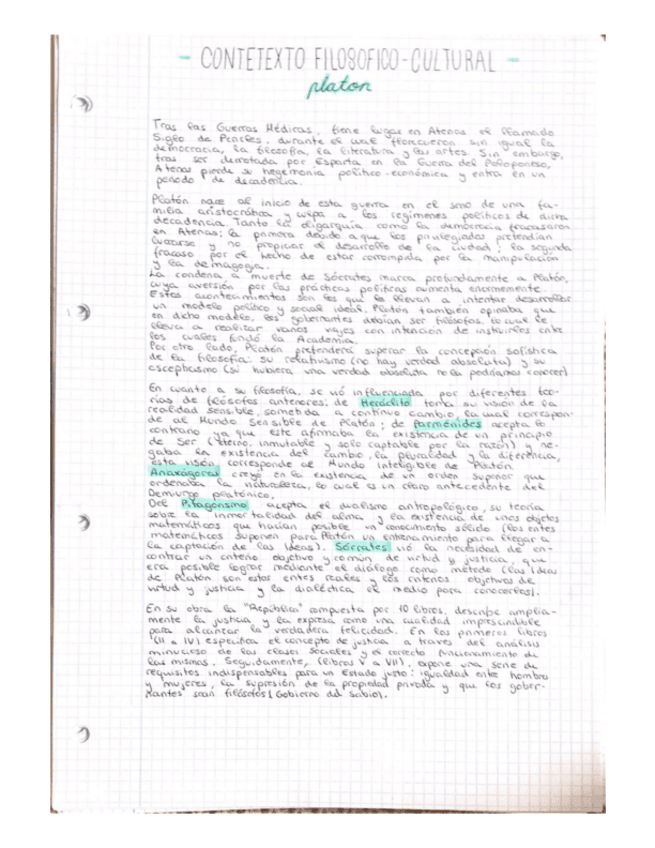 - CONTETEXTO FILOSOFICO-CULTURAL -
platon
Tras las Guerras Médicas, tiene lugar en Atenas el llamado
Siglo de Pericles, durante el cual florecieron sin igual la
democracia, la filosofía, la literatura y las artes. Sin embargo,
tras ser derrotada por Esparta en la Guerra del Peloponeso,
Atenas pierde su hegemonía político-económica y entra en un
período de decadencia.
Platón nace al inicio de esta guerra en el seno de una fa-
milia aristocrática y culpa a los regímenes políticos de dicha
decadencia. Tanto la oligarquía como la democracia fracasaron
en Atenas: la primera debido a que los privilegiados pretendían
lucrarse y no propiciar el desarrollo de la ciudad; la segunda
fracasó por el hecho de estar corrompida por la manipulación
y la demagogia.
La condena a muerte de Sócrates marca profundamente a Platón,
cuya aversión por las prácticas políticas aumenta enormemente.
Estos acontecimientos son los que le llevan a intentar desarrollar
un modelo político y social ideal. Platón también opinaba que
en dicho modelo, los gobernantes debían ser filósofos, lo cual le
lleva a realizar varios viajes con intención de instruirlos entre
los cuales fundó la Academia.
Por otro lado, Platón pretenderá superar la concepción sofística
de la filosofía: su relativismo (no hay verdad absoluta) y su
escepticismo (si hubiera una verdad absoluta no la podríamos conocer)
En cuanto a su filosofía, se vió influenciada por diferentes teo-
rías de filósofos anteriores: de Heráclito toma su visión de la
realidad sensible, sometida a continuo cambio, la cual correspon-
de al Mundo Sensible de Platón; de Parménides acepta lo
contrario ya que este afirmaba la existencia de un principio
de Ser (eterno, inmutable y solo captable por la razón) y ne-
gaba la existencia del cambio, la pluralidad y la diferencia,
esta visión corresponde al Mundo Inteligible de Platón
Anaxágoras creyó en la existencia de un orden superior que
ordenaba la naturaleza, lo cual es un claro antecedente del
Demiurgo platónico.
Del Pitagorismo acepta el dualismo antropológico, su teoría
sobre la inmortalidad del alma y la existencia de unos objetos
matemáticos que hacían posible un conocimiento sólido (los entes
matemáticos suponen para Platón un entrenamiento para llegar a
la captación de las Ideas). Sócrates vió la necesidad de en-
contrar un criterio objetivo y común de virtud y justicia, que
era posible lograr mediante el diálogo como método (las Ideas
de Platón son estos entes reales y los criterios objetivos de
virtud y justicia y la dialéctica el medio para conocerlos).
En su obra la "República" compuesta por 10 libros, describe amplia-
mente la justicia y la expresa como una cualidad imprescindible
para alcanzar la verdadera felicidad. En los primeros libros
(II a IV) especifica el concepto de justicia a través del análisis
minucioso de las clases sociales y el correcto funcionamiento de
las mismas. Seguidamente, (libros V a VII), expone una serie de
requisitos indispensables para un Estado justo: igualdad entre hombres
y mujeres, la supresión de la propiedad privada y que los gober-
nantes sean filósofos (Gobierno del Sabio).